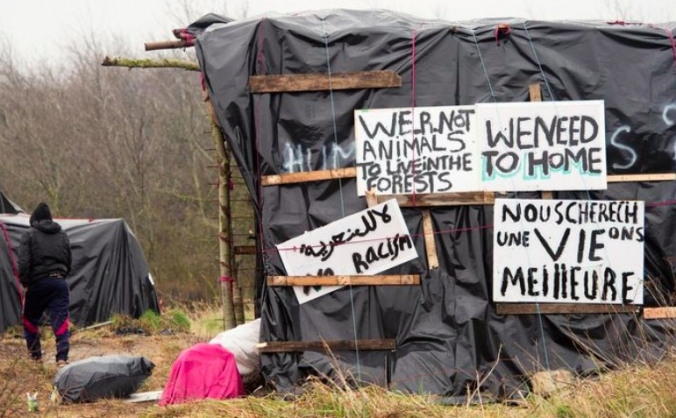 WE R NOT
ANIMALS
TO LIVE IN THE
FORESTS
WE NEED
TO HOME
NO RACISM
NOUS CHERECH
UNE VIE ONS
MEILLEURE